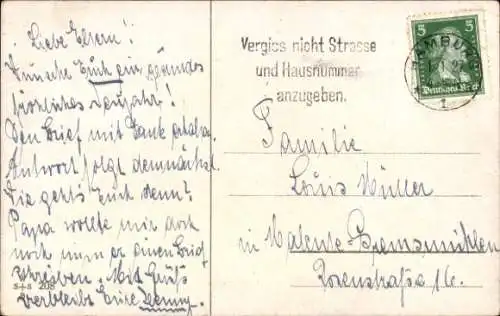 Liebe Eltern!
Wünsche Euch ein gesundes
fröhliches Neujahr!
Den Brief mit Dank erhalten.
Antwort folgt demnächst.
Wie geht's Euch denn?
Papa wollte mir doch
noch einen Brief
schreiben. Mit Gruß
verbleibt Eure
s+s 208
Vergiss nicht Strasse
und Hausnummer
anzugeben.
HAMBURG
1
5 5
Deutsches Reich
Familie
Louis Müller
in Malente-Gremsmühlen
Rosenstraße 16.